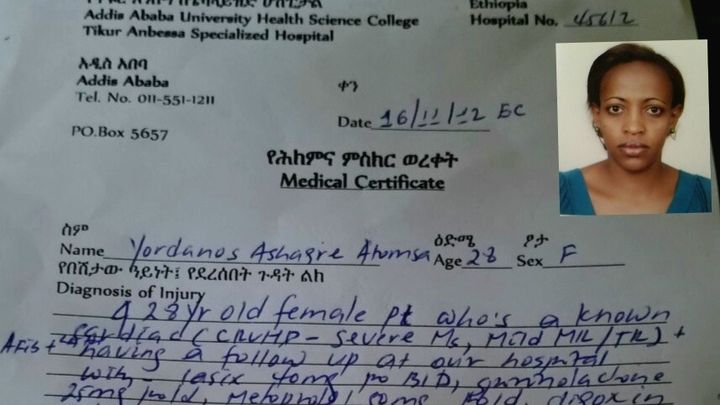 Ethiopia
Addis Ababa University Health Science College
Hospital No. 45612
Tikur Anbessa Specialized Hospital
አዲስ አበባ
Addis Ababa
ቀን
Tel. No. 011-551-1211
Date 16/11/12 EC
P.O.Box 5657
የሕክምና ምስክር ወረቀት
Medical Certificate
ስም ዕድሜ ፆታ
Name Yordanos Ashagre Atomsa Age 28 Sex F
የበሽታው ዓይነት፤ የደረሰበት ጉዳት ልክ
Diagnosis of Injury
A 28 yr old female pt who's a known
cardiac (CRVHD - Severe Ms, Mild MR/TR) +
Afib + having a follow up at our hospital
with - lasix 40mg po BID,
25mg po/d, Metoprolol 50mg po/d, digoxin